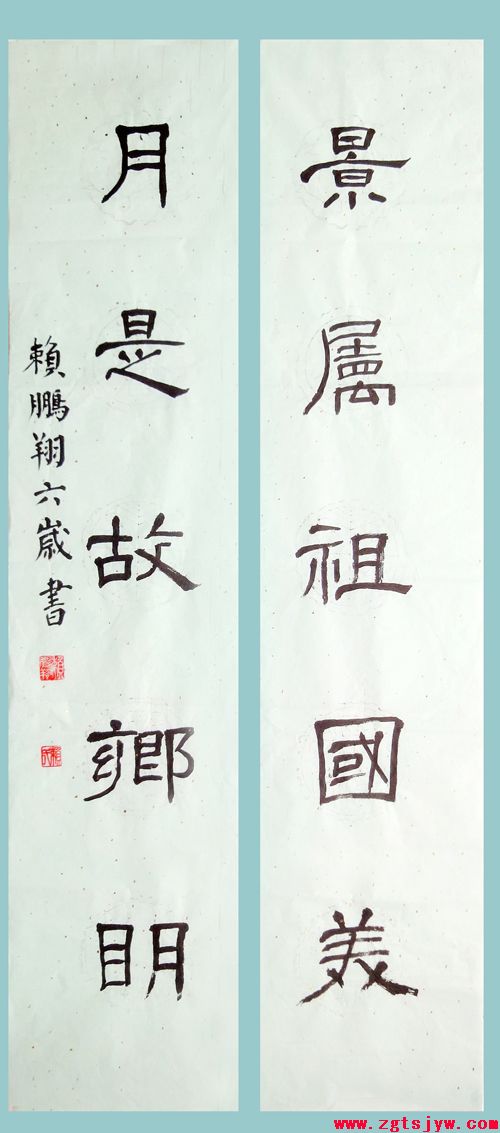 景屬祖國美
月是故鄉明
賴鵬翔六歲書
www.zgtsjyw.com